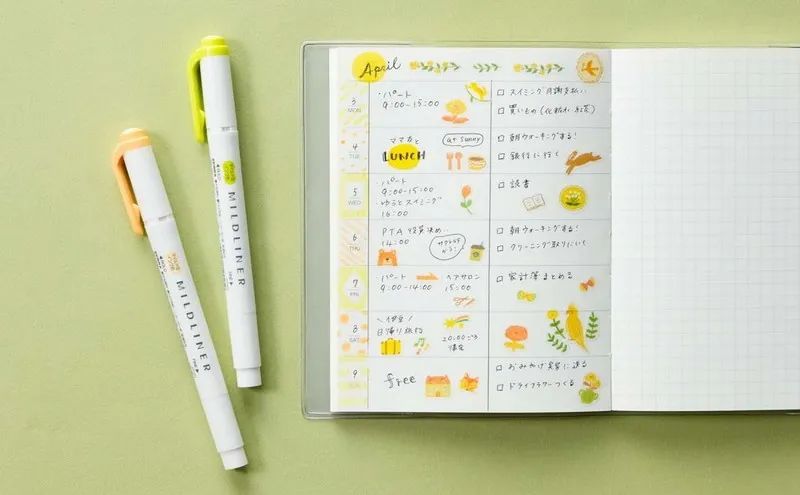 MILDLINER
MILDLINER
April
3
MON
・パート
9:00-15:00
□ スイミング月謝を払い
□ 買いもの(化粧水 紅茶)
4
TUE
ママ友と
LUNCH
at Sunny
□ 朝ウォーキングする!
□ 銀行に行く
5
WED
パート
9:00-15:00
ゆうとスイミング
16:00
□ 読書
6
THU
PTA 役員決め…
14:00
□ 朝ウォーキングする!
□ クリーニング取りにいく
7
FRI
パート
9:00-14:00
ヘアサロン
15:00
□ 家計簿まとめる
8
SAT
\伊豆/
日帰り旅行
20:00ごろ
帰宅
9
SUN
free
□ おみやげ実家に送る
□ ドライフラワーつくる